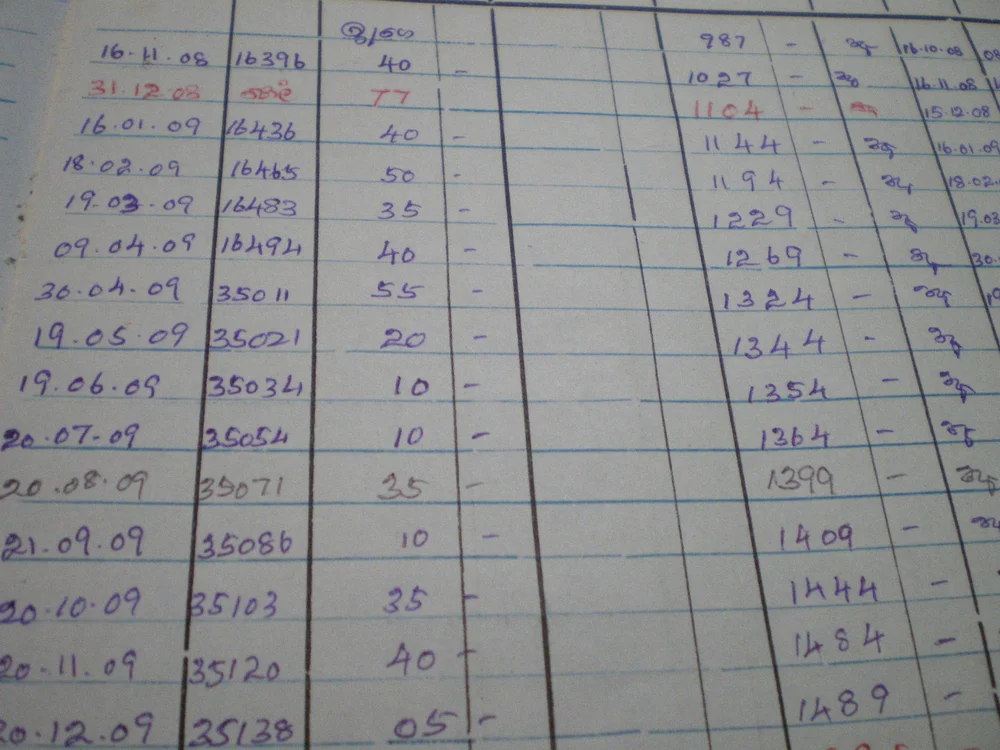 987 -  16.10.08 08
16.11.08 16396 40 - 1027 - 16.11.08
31.12.08 77 1104 - 15.12.08
16.01.09 16436 40 - 1144 - 16.01.09
18.02.09 16465 50 - 1194 - 18.02.
19.03.09 16483 35 - 1229 - 19.03
09.04.09 16494 40 - 1269 - 30.
30.04.09 35011 55 - 1324 - 19
19.05.09 35021 20 - 1344 -
19.06.09 35034 10 - 1354 -
20.07-09 35054 10 - 1364 -
20.08.09 35071 35 - 1399 -
21.09.09 35086 10 - 1409 -
20.10.09 35103 35 - 1444 -
20.11.09 35120 40 - 1484 -
20.12.09 35138 05 - 1489 -